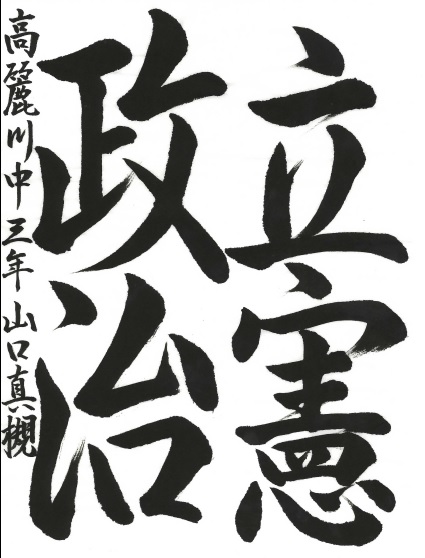 立憲
政治
高麗川中三年山口真槻